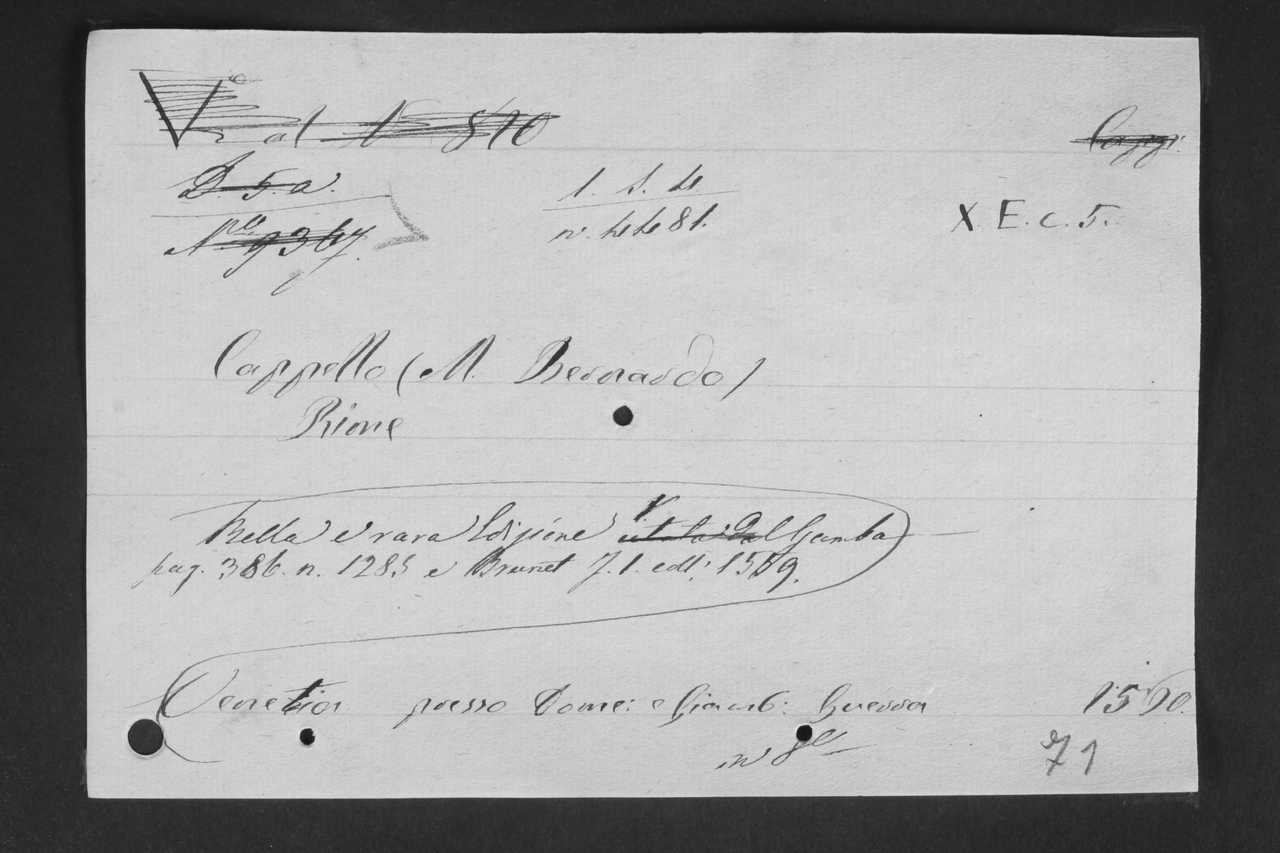 V. al N. 870
Capp.
D. 5. a.
1. S. 4
N.ro 9367.
n. 4481.
X. E. c. 5.
Cappello (M. Bernardo)
Rime
Bella e rara Edizione citata dal Gamba
pag. 386. n. 1285 e Brunet J. 1. coll: 1559.
Venetia presso Dome: e Giamb: Guerra 1560.
in 8°
71